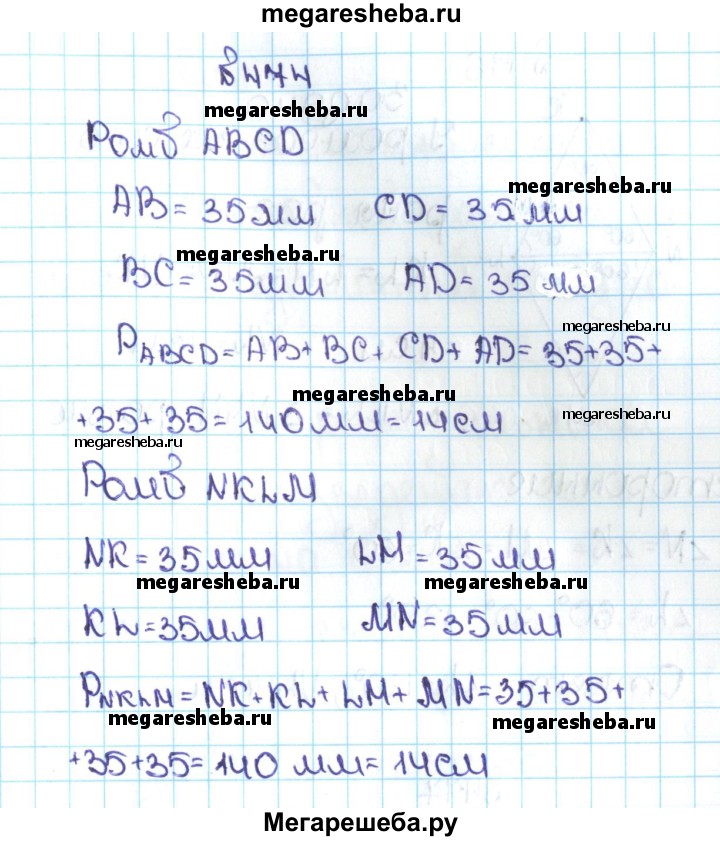 megaresheba.ru
megaresheba.ru
Ромб ABCD
megaresheba.ru
AB = 35 мм CD = 35 мм
megaresheba.ru
BC = 35 мм AD = 35 мм
megaresheba.ru
P ABCD = AB + BC + CD + AD = 35 + 35 +
megaresheba.ru
+ 35 + 35 = 140 мм = 14 см
megaresheba.ru
megaresheba.ru
Ромб NKLM
NK = 35 мм LM = 35 мм
megaresheba.ru megaresheba.ru
KL = 35 мм MN = 35 мм
P NKLM = NK + KL + LM + MN = 35 + 35 +
megaresheba.ru megaresheba.ru
+ 35 + 35 = 140 мм = 14 см
Мегарешеба.ру